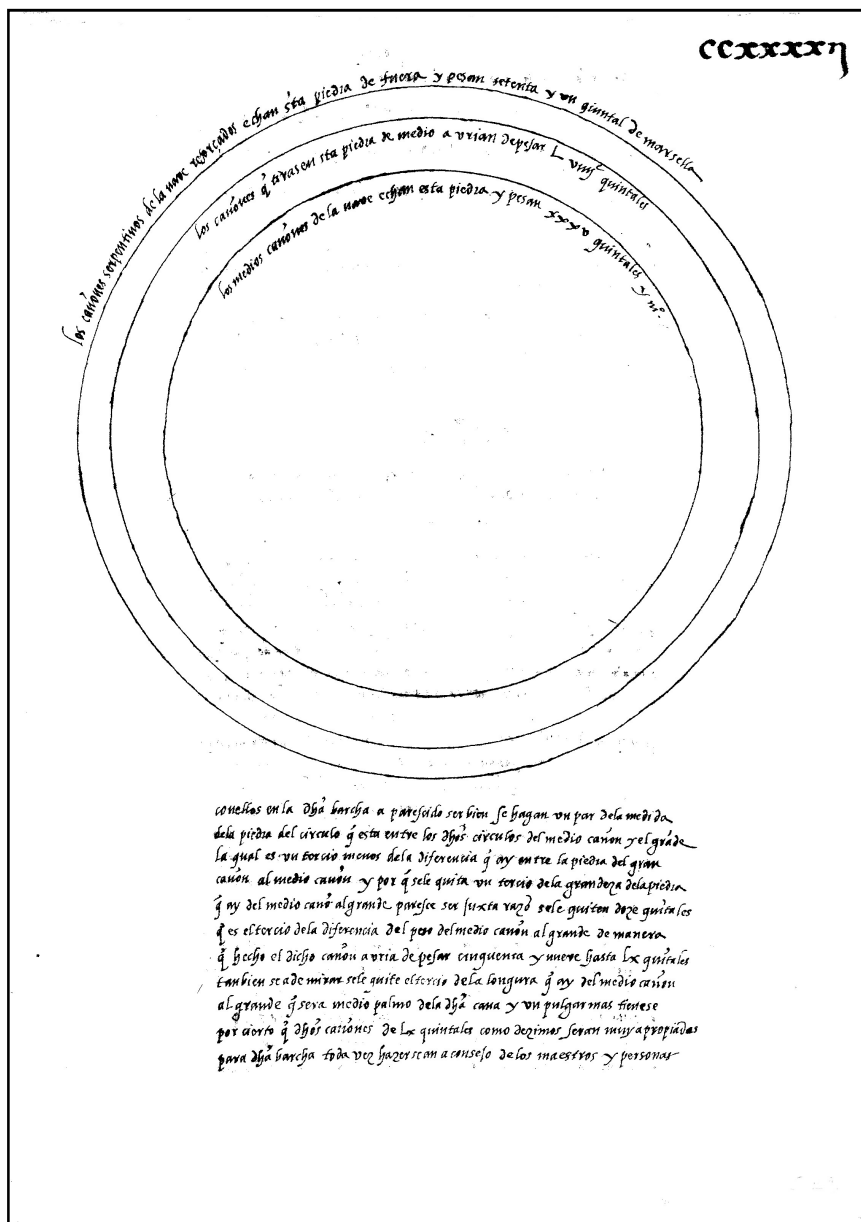 ccxxxxij
los cañones serpentinos de la nave reforçados echan sta piedra de fuera y pesan setenta y un quintal de marsella
los cañones q̃ tirasen sta piedra de medio avrian de pesar L viiij quintales
los medios cañones de la nave echan esta piedra y pesan xxxv quintales y mº.
conellos en la dha barcha a parescido ser bien se hagan un par dela medida
dela piedra del circulo q̃ esta entre los dhos circulos del medio cañon y el grãde
la qual es un tercio menos dela diferencia q̃ ay entre la piedra del gran
cañon al medio cañon y por q̃ sele quita un tercio dela grandeza dela piedra
q̃ ay del medio cano al grande paresce ser juxta razõ sele quiten doze quĩtales
q̃ es el tercio dela diferencia del peso del medio cañon al grande de manera
q̃ hecho el dicho cañon avria de pesar cinquenta y nueve hasta Lx quĩtales
tanbien se a de mirar sele quite el tercio de la longura q̃ ay del medio cañon
al grande q̃ sera medio palmo dela dha cana y un pulgar mas tienese
por cierto q̃ dhos cañones de Lx quintales como dezimos seran muy apropiados
para dha barcha toda vez hazersean a consejo de los maestros y personas